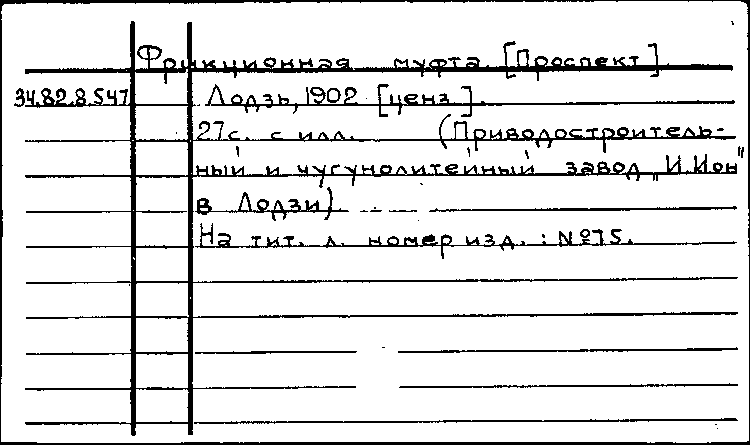 Фрикционная муфта [Проспект]
34.82.8.547 Лодзь, 1902 [ценз].
27с. с илл. (Приводостроитель-
ный и чугунолитейный завод „И.Ион"
в Лодзи)
На тит. л. номер изд.: №75.